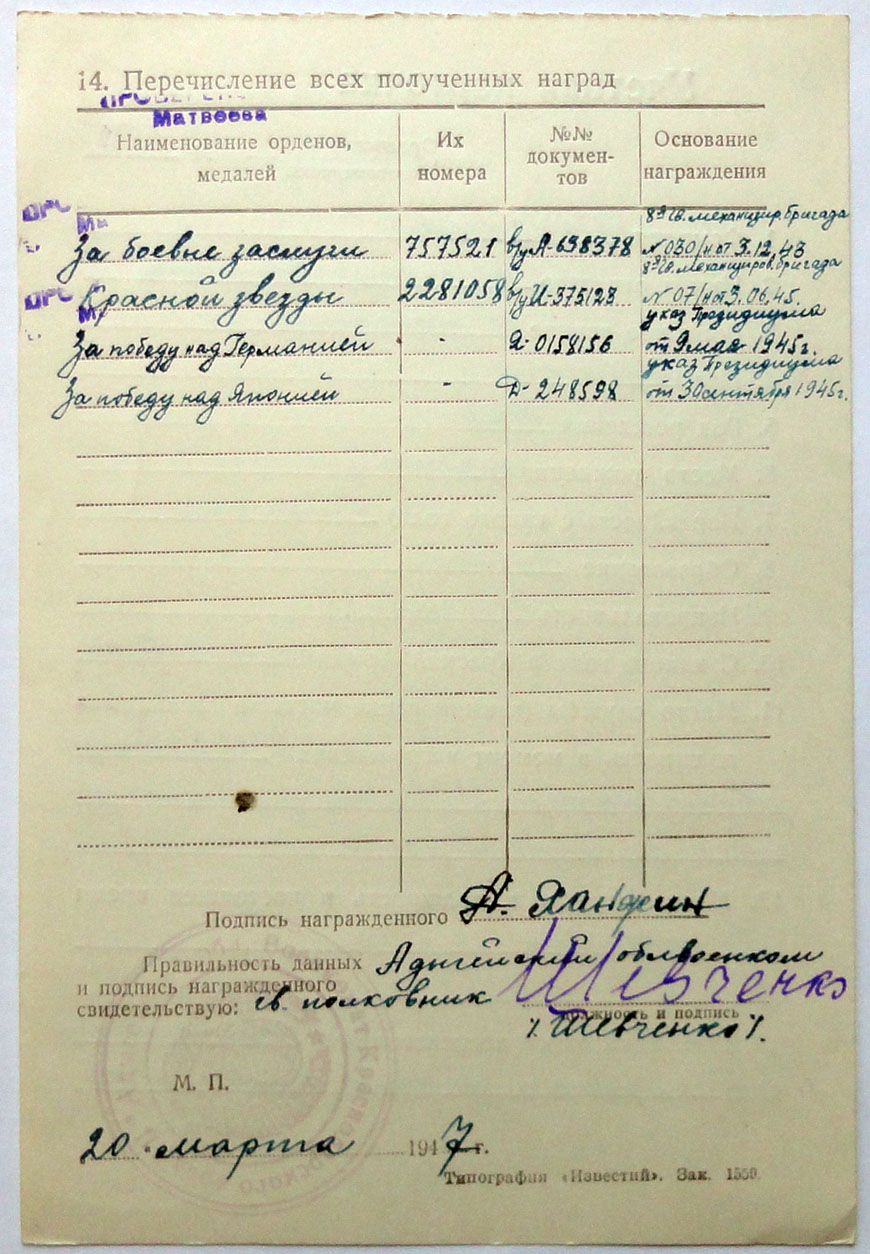 14. Перечисление всех полученных наград
Матвеева
Наименование орденов, медалей
Их номера
№№ докумен-тов
Основание награждения
8й Гв. механизир. бригада
За боевые заслуги 757521 в/у А-638378 №030/н от 3.12.43
8й Гв. механизиров. бригада
Красной звезды 2281058 в/у И-375123 №07/н от 3.06.45.
указ Президиума
За победу над Германией - Я-0158156 от 9 мая 1945г.
указ Президиума
За победу над Японией - Д-248598 от 30 сентября 1945г.
Подпись награжденного А.
Правильность данных Адыгейский облвоенком
и подпись награжденного
свидетельствую: гв. полковник Шевченко
должность и подпись
/. Шевченко /.
М. П.
20 марта 1947 г.
Типография «Известий». Зак. 1559.